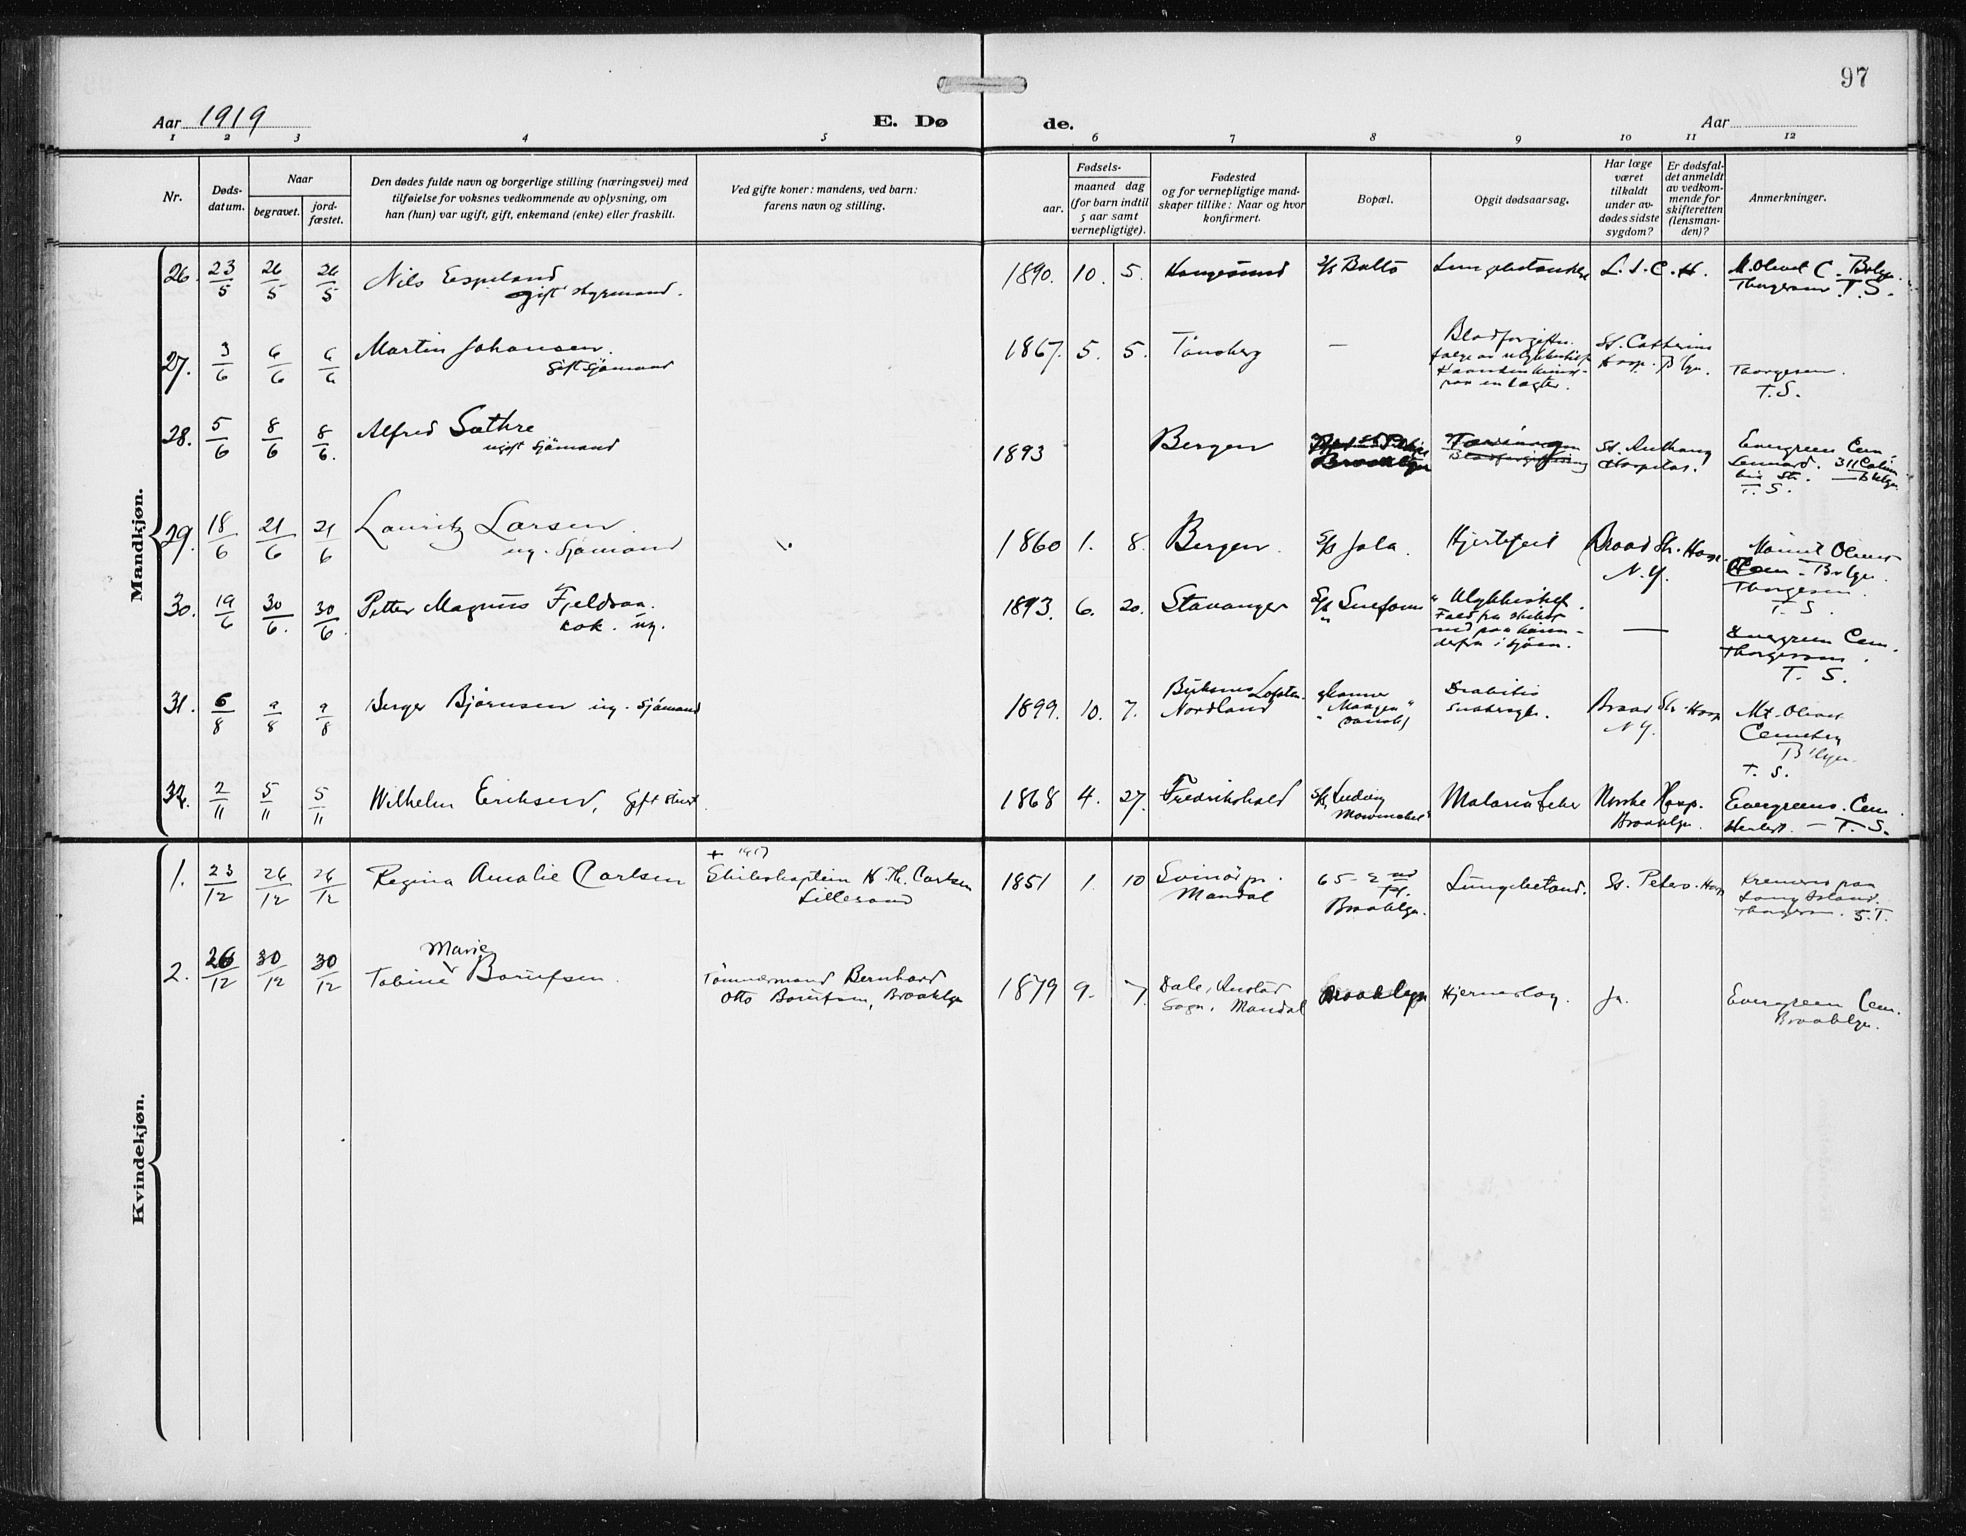 97
Aar 1919
E. Dø
de.
Aar
1 2 3 4 5 6 7 8 9 10 11 12
Nr.
Døds-
datum.
Naar
begravet.
jord-
fæstet.
Den dødes fulde navn og borgerlige stilling (næringsvei) med
tilføielse for voksnes vedkommende av oplysning, om
han (hun) var ugift, gift, enkemand (enke) eller fraskilt.
Ved gifte koner: mandens, ved barn:
farens navn og stilling.
Fødsels-
aar.
maaned dag
(for barn indtil
5 aar samt
vernepligtige).
Fødested
og for vernepligtige mand-
skaper tillike: Naar og hvor
konfirmert.
Bopæl.
Opgit dødsaarsag.
Har læge
været
tilkaldt
under av-
dødes sidste
sygdom?
Er dødsfal-
det anmeldt
av vedkom-
mende for
skifteretten
(lensman-
den)?
Anmerkninger.
Mandkjøn.
26. 23/5 26/5 26/5 Nils Espeland
gift styrmand.
1890. 10. 5. Haugesund S/S Balto L. I. C. H. M. Olivet C. Bklyn.
Thorgersen T. S.
27. 3/6 6/6 6/6 Martin Johansen.
gift sjömand
1867. 5. 5. Tönsberg — Blodforgiftn.
St. Catherine
Hosp. Bklyn.
Thorgersen.
T. S.
28. 5/6 8/6 8/6. Alfred Sæthre
ugift sjömand
1893 Bergen Brooklyn
Blodforgiftning
St. Anthony
Hospital.
Evergreen Cem.
T. S.
29. 18/6 21/6 21/6 Lauritz Larsen.
ug. Sjömand
1860 1. 8. Bergen. S/S Hjertefeil Broad Str. Hosp.
N. Y.
Mount Olivet
Cem. Bklyn.
Thorgersen.
T. S.
30. 19/6 30/6. 30/6. Petter Magnus Fjeldsaa.
kok. ug.
1893. 6. 20. Stavanger S/S Ulykkestilf.
i sjöen.
—
Evergreen Cem.
Thorgersen.
T. S.
31. 6/8 9/8 9/8 Berger Bjørnsen ug. sjömand
1899. 10. 7. Buksnes Lofoten
Nordland
Skonner
"Maagen"
Diabetis
Sukkersyke.
Broad Str. Hosp
N Y.
Mt. Olivet
Cemetery
B'klyn.
T. S.
32. 2/11 5/11 5/11 Wilhelm Eriksen, gift
1868 4. 27. Fredrikshald S/S Ludvig
Mowinckel
Malaria feber Norske Hosp.
Brooklyn.
Evergreens. Cem.
— T. S.
Kvindekjøn.
1. 23/12 26/12 26/12 Regina Amalie Carlsen
+ 1917
Skibskaptein K. Th. Carlsen
Lillesand
1851 1. 10 Svinör pr.
Mandal
65 - 2nd
Pl.
Brooklyn.
Lungebetænd. St. Peters. Hosp
Kremeres paa
Long Island.
Thorgersen. S. T.
2. 26/12 30/12 30/12 Marie
Tobine
Tömmermand Bernhard
Otto Brooklyn
1879 9. 7. Dale,
Sogn, Mandal
Brooklyn Hjerneslag. Ja.
Evergreen Cem.
Brooklyn.